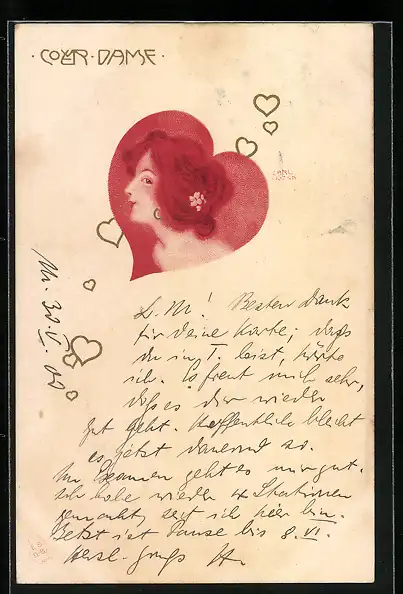 · COEUR · DAME ·
CARL
JOZSA
M. 30. V. 00
L. M! Besten Dank
für deine Karte; dass
du in T. bist, hörte
ich. Es freut mich sehr,
dass es dir wieder
gut geht. Hoffentlich bleibt
es jetzt dauernd so.
Im Examen geht es mir gut.
Ich habe wieder 4 Stationen
gemacht, seit ich hier bin.
Jetzt ist Pause bis 8. VI.
Herzl. Gruss H.